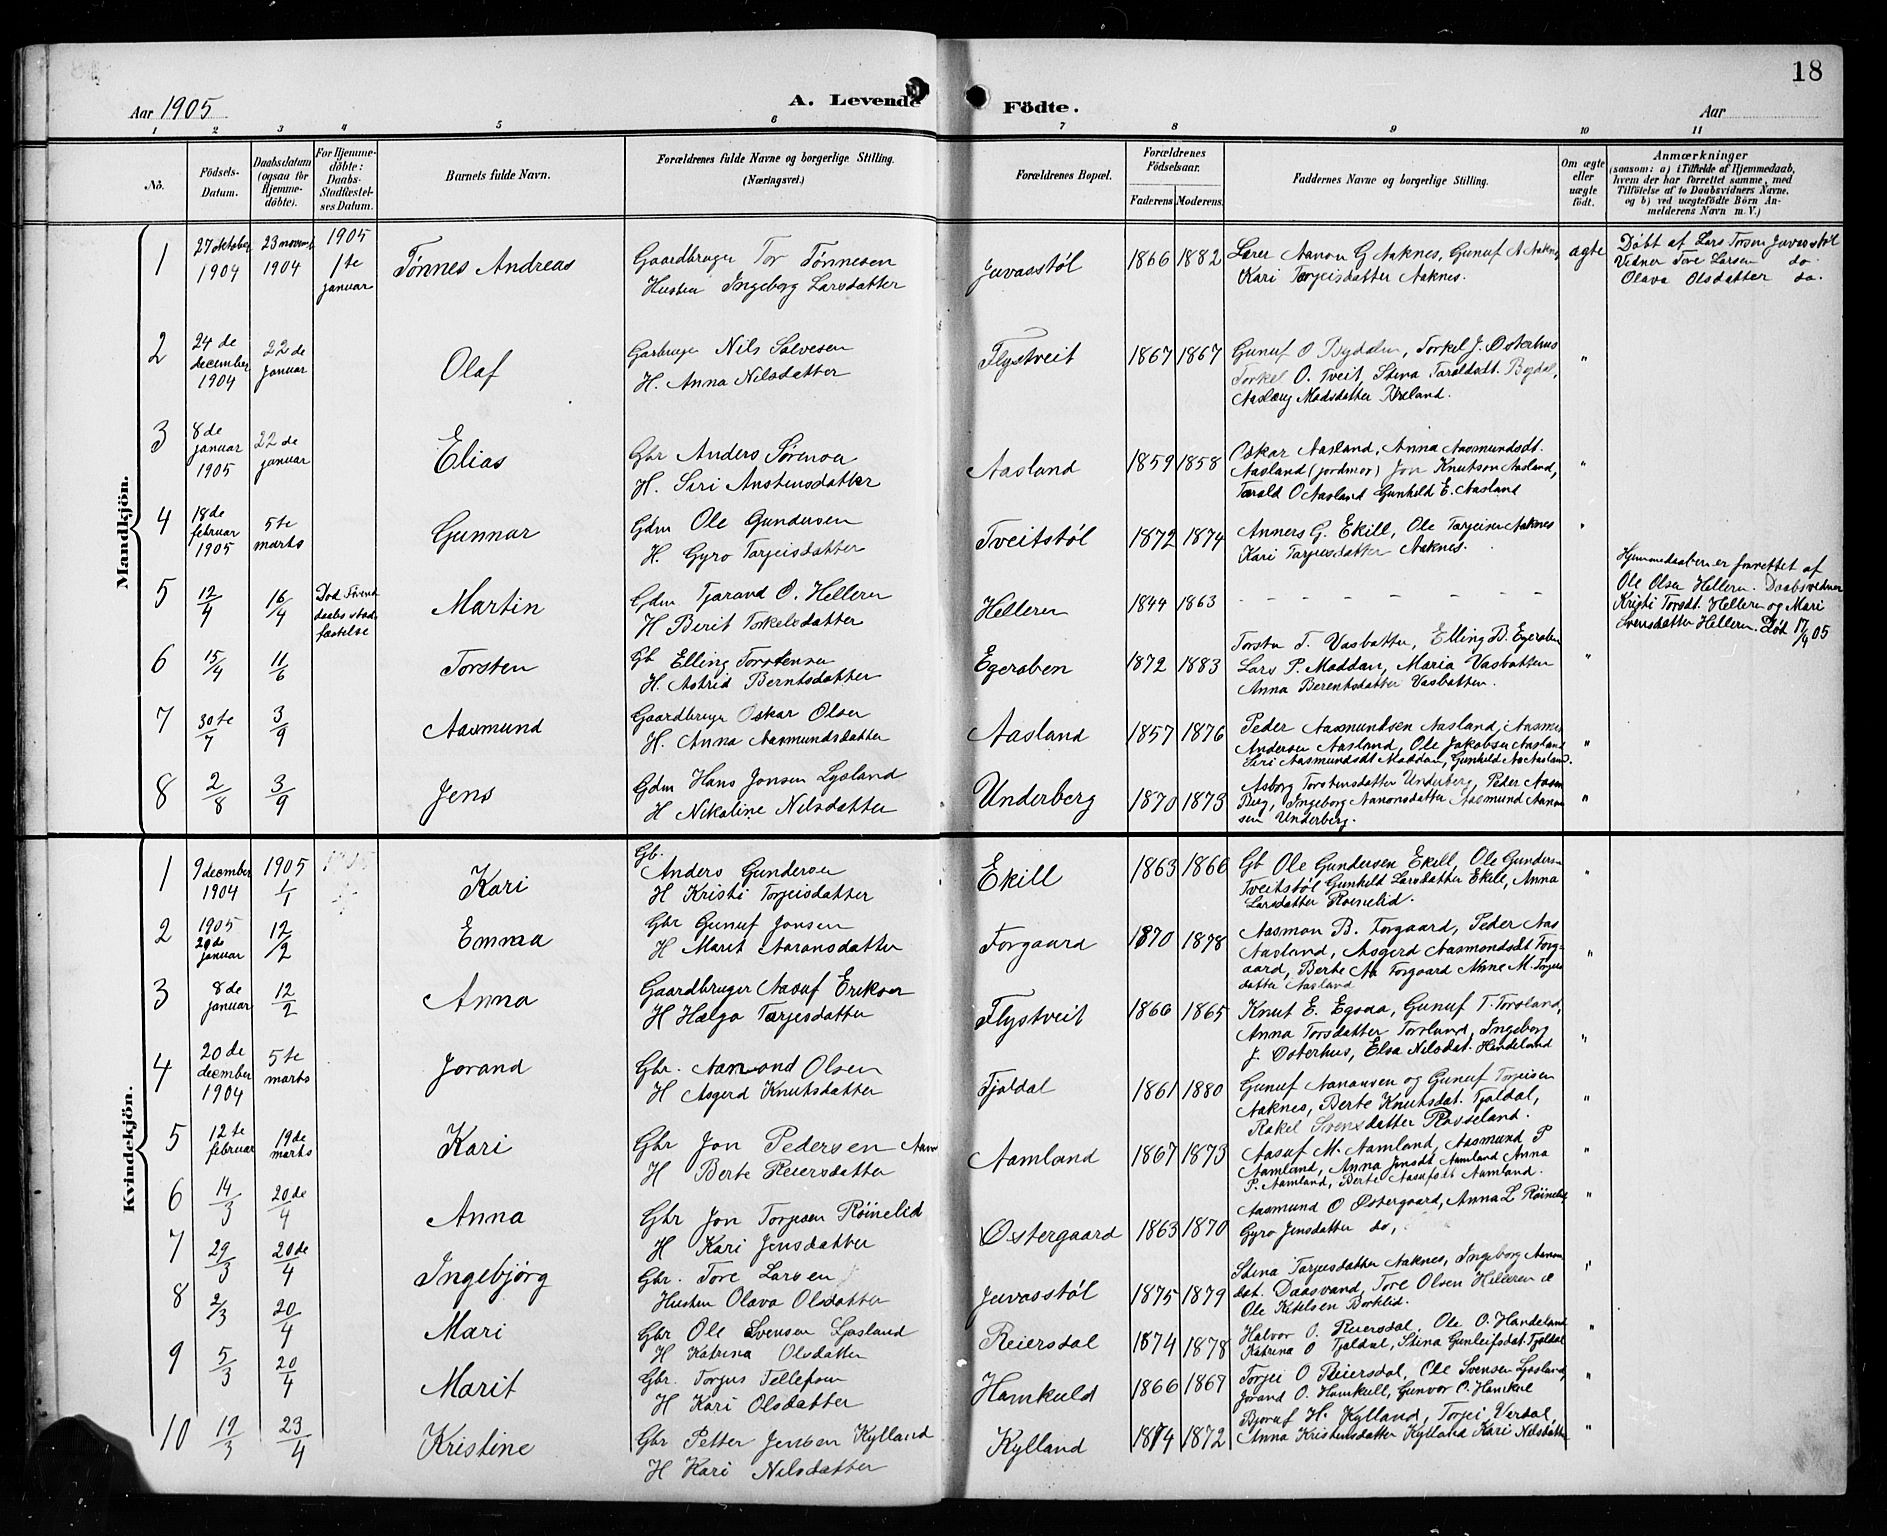 18
Aar 1905
A. Levende Födte.
Aar
1 2 3 4 5 6 7 8 9 10 11
No.
Födsels-Datum.
Daabsdatum (ogsaa for Hjemme-döbte).
For Hjemme-döbte: Daabs-Stadfæstel-ses Datum.
Barnets fulde Navn.
Forældrenes fulde Navne og borgerlige Stilling. (Næringsvei.)
Forældrenes Bopæl.
Forældrenes Födselsaar.
Faderens Moderens
Faddernes Navne og borgerlige Stilling.
Om ægte eller uægte födt.
Anmærkninger
(saasom: a) i Tilfælde af Hjemmedaab, hvem der har forrettet samme, med Tilföielse af to Daabsvidners Navne, og b) ved uægtefödte Börn An-melderens Navn m. V.)
Mandkjön.
1 27 oktober 1904 23 novemb 1904 1905 1te januar Tønnes Andreas
Gaardbruger Tor Tønnesen
Hustru Ingeborg Larsdatter
Juvasstøl 1866 1882
Lærer Aanon G Aaknes, Gunuf A Aaknes
Kari Tarjeisdatter Aaknes.
ægte
Døbt af Lars Torsen Juvasstøl
Vidner Tore Larsen do.
Olava Olsdatter do.
2 24 de december 1904 22 de januar Olaf
Garbruger Nils Salvesen
H. Anna Nilsdatter
Flystveit 1867 1867
Gunuf O Bygdalen, Torkel J. Østerhus
Torkel O. Tveit, Stina Taraldsdt. Bygdal,
Aaslaug Madsdatter
"
3 8 de januar 1905 22 de januar Elias
Gbr Anders Sørensen
H. Siri Anstensdatter
Aasland 1859 1858
Oskar Aasland, Anna Aasmundsdt.
Aasland (jordmor) Jon Knutson Aasland,
Tarald O Aasland Gunhild E. Aasland
"
4 18 de februar 1905 5te marts Gunnar
Gdm Ole Gundersen
H. Gyro Tarjeisdatter
Tveitstøl 1872 1874
Anners G. Ekill, Ole Tarjeisen Aaknes
Kari Tarjeisdatter Aaknes.
"
5 12/4 16/4 Død før end daabs stad fæstelse Martin
Gdm Tjarand O. Helleren
H Berit Torkelsdatter
Helleren 1844 1863
- - - - - - - -
Hjemmedaaben er forrettet af
Ole Olsen Helleren. Daabsvidner
Kristi Torsdt. Helleren og Mari
Svensdatter Helleren. Død 17/4 05
6 15/4 11/6 Torsten
Gb Elling Torstensen
H. Astrid Berntsdatter
Egeraben 1872 1883
Torsten T. Vasbatten, Elling B. Egeraben
Lars P. Moddan, Maria Vasbatten
Anna Berentsdatter Vasbatten.
"
7 30te/7 3/9 Aasmund
Gaardbruger Oskar Olsen
H. Anna Aasmundsdatter
Aasland 1857 1876
Peder Aasmundsen Aasland, Aasmun
Andersen Aasland, Ole Jakobsen Aasland
Siri Aasmundsdt Moddan, Gunhild Aa Aasland.
"
8 2/8 3/9 Jens
Gdm Hans Jonsen Lysland
H Nikoline Nilsdatter
Underberg 1870 1873
Asborg Torstensdatter Underberg, Peder Aasm
Berg, Ingeborg Aanonsdatter Aasmund Aanon
sen Underberg.
"
Kvindekjön.
1 9 december 1904 1905 1/1 Kari
Gb. Anders Gundersen
H Kristi Torjeisdatter
Ekill 1863 1866
Gb Ole Gundersen Ekill, Ole Gunders
Tveitstøl Gunhild Larsdatter Ekill, Anna
Larsdatter Roinelid.
"
2 1905 29 de januar 12/2 Emma
Gbr Gunuf Jonsen
H Marit Aaronsdatter
Forgaard 1870 1878
Aasmon B. Forgaard, Peder Aas
Aasland, Asgerd Aasmondsdt Forg-
aard, Berte Aa Forgaard Anne M. Torjus
datter Aasland
"
3 8 de januar 12/2 Anna
Gaardbruger Aasuf Eriksen
H Hælga Tarjesdatter
Flystveit 1866 1865
Knut E. Egsaa, Gunuf T. Torsland,
Anna Torsdatter Torsland, Ingeborg
J. Østerhus, Elsa Nilsdat. Hindeland
"
4 20 de december 1904 5te marts Jorand
Gbr. Aamond Olsen
H Asgerd Knutsdatter
Fjaldal 1861 1880
Gunuf Aanonsen og Gunuf Torjeisen
Aaknes, Berte Knutsdat. Fjaldal,
Rakel Svensdatter Rosseland.
"
5 12te februar 19 de marts Kari
Gbr Jon Pedersen Aaml
H Berte Reiersdatter
Aamland 1867 1873
Aasuf M. Aamland, Aasmund P
Aamland, Anna Jensdt Aamland Anna
P. Aamland, Berte Aasufsdt Aamland.
"
6 14/3 20 de/4 Anna
Gbr Jon Torjesen Röinelid
H Kari Jensdatter
Østergaard 1863 1870
Aasmund O Østergaard, Anna L Röinelid
Gyro Jensdatter do,
"
7 29/3 20 de/4 Ingebjørg
Gbr. Tore Larsen
Hustru Olava Olsdatter
Juvasstøl 1875 1879
Stina Tarjeisdatter Aaknes, Ingeborg Aanon
dat. Daasvand, Tore Olsen Helleren &
Ole Kitelsen Borklid.
"
8 2/3 20/4 Mari
Gbr Ole Svensen Ljosland
H Katrina Olsdatter
Reiersdal 1874 1878
Halvor O. Reiersdal, Ole O. Handeland
Katrina O Fjaldal, Stina Gunleifsdat. Fjaldal
"
9 5/3 20/4 Marit
Gbr. Torjus Tollefsen
H Kari Olsdatter
Hamkuld 1866 1867
Torjei O Reiersdal, Ole Svensen Ljosland,
Jorand O. Hamkull, Gunvor O. Hamkul
"
10 19/3 23/4 Kristine
Gbr Petter Jensen Kylland
H Kari Nilsdatter
Kylland 1874 1872
Bjoruf H. Kylland, Torjei Verdal,
Anna Kristensdatter Kylland Kari Nilsdatter
"